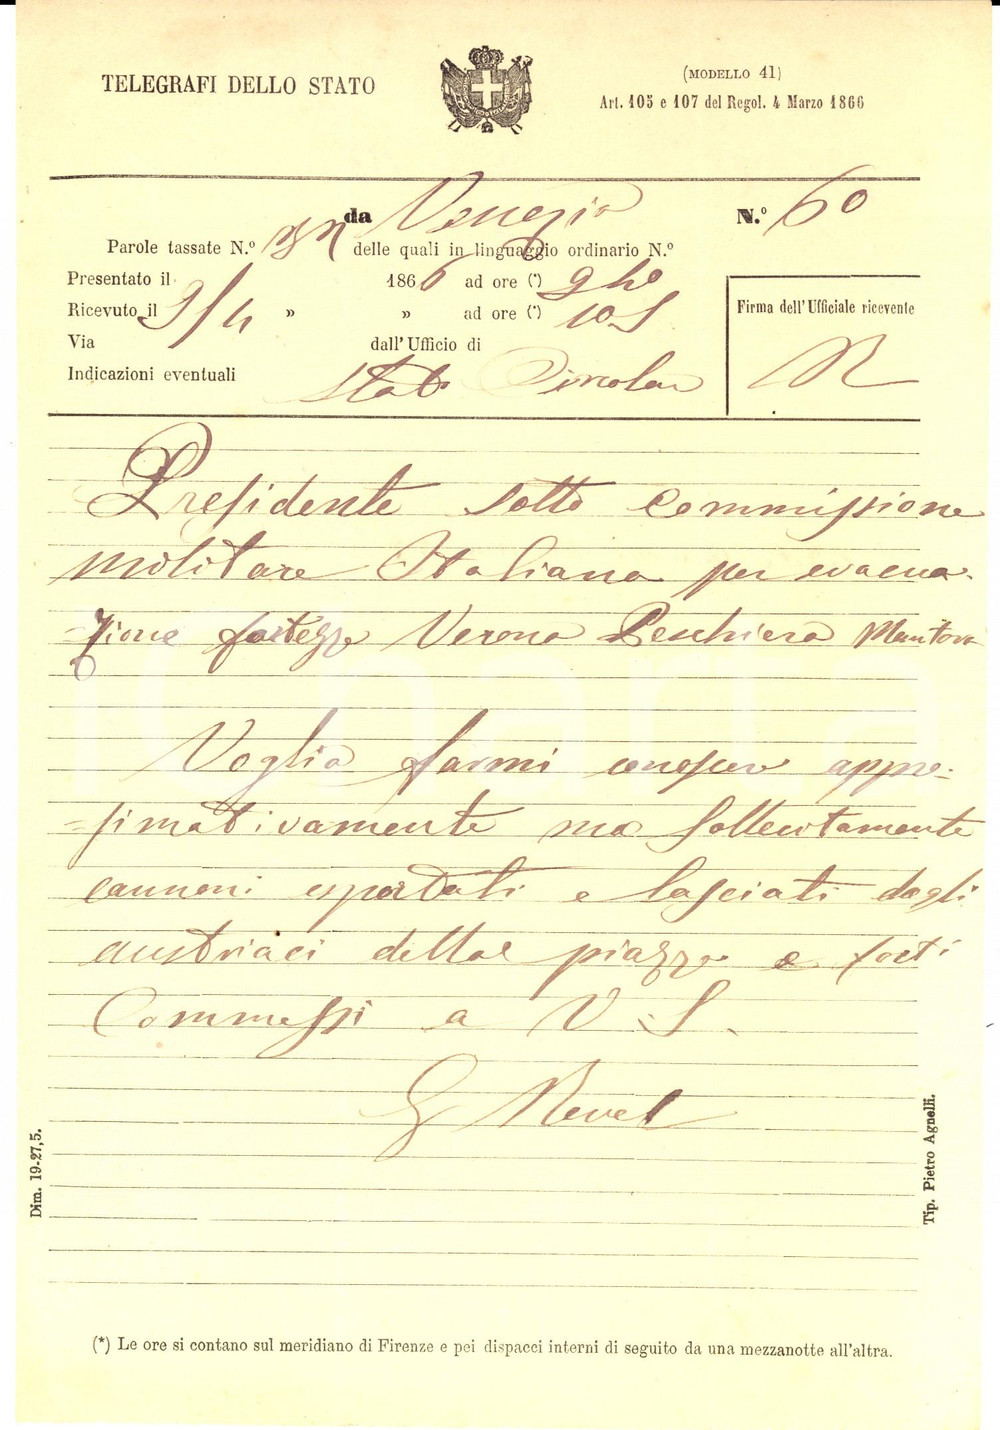 TELEGRAFI DELLO STATO
(MODELLO 41)
Art. 105 e 107 del Regol. 4 Marzo 1866
da Venezia
N.° 60
Parole tassate N.° delle quali in linguaggio ordinario N.°
Presentato il 1866 ad ore (*) 9 40
Ricevuto il 9/4 » » ad ore (*) 10 5
Via dall' Ufficio di
Indicazioni eventuali Stato Circolare
Firma dell' Ufficiale ricevente
Presidente sotto commissione
militare Italiana per evacua-
=zione fortezze Verona Peschiera Mantova
Voglia farmi conoscere appros-
=simativamente ma sollecitamente
cannoni esportati e lasciati dagli
austriaci delle piazze e forti
Commessi a V. S.
G Revel
Dim. 19-27,5.
Tip. Pietro Agnelli.
(*) Le ore si contano sul meridiano di Firenze e pei dispacci interni di seguito da una mezzanotte all'altra.